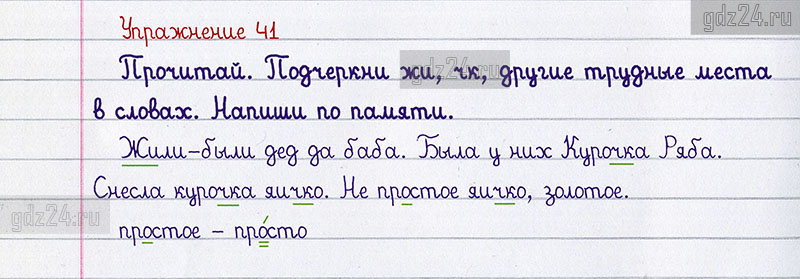 gdz24.ru
Упражнение 41
gdz24.ru
Прочитай. Подчеркни жи, чк, другие трудные места
gdz24.ru
в словах. Напиши по памяти.
Жили-были дед да баба. Была у них Курочка Ряба.
Снесла курочка яичко. Не простое яичко, золотое.
gdz24.ru
простое – про́сто